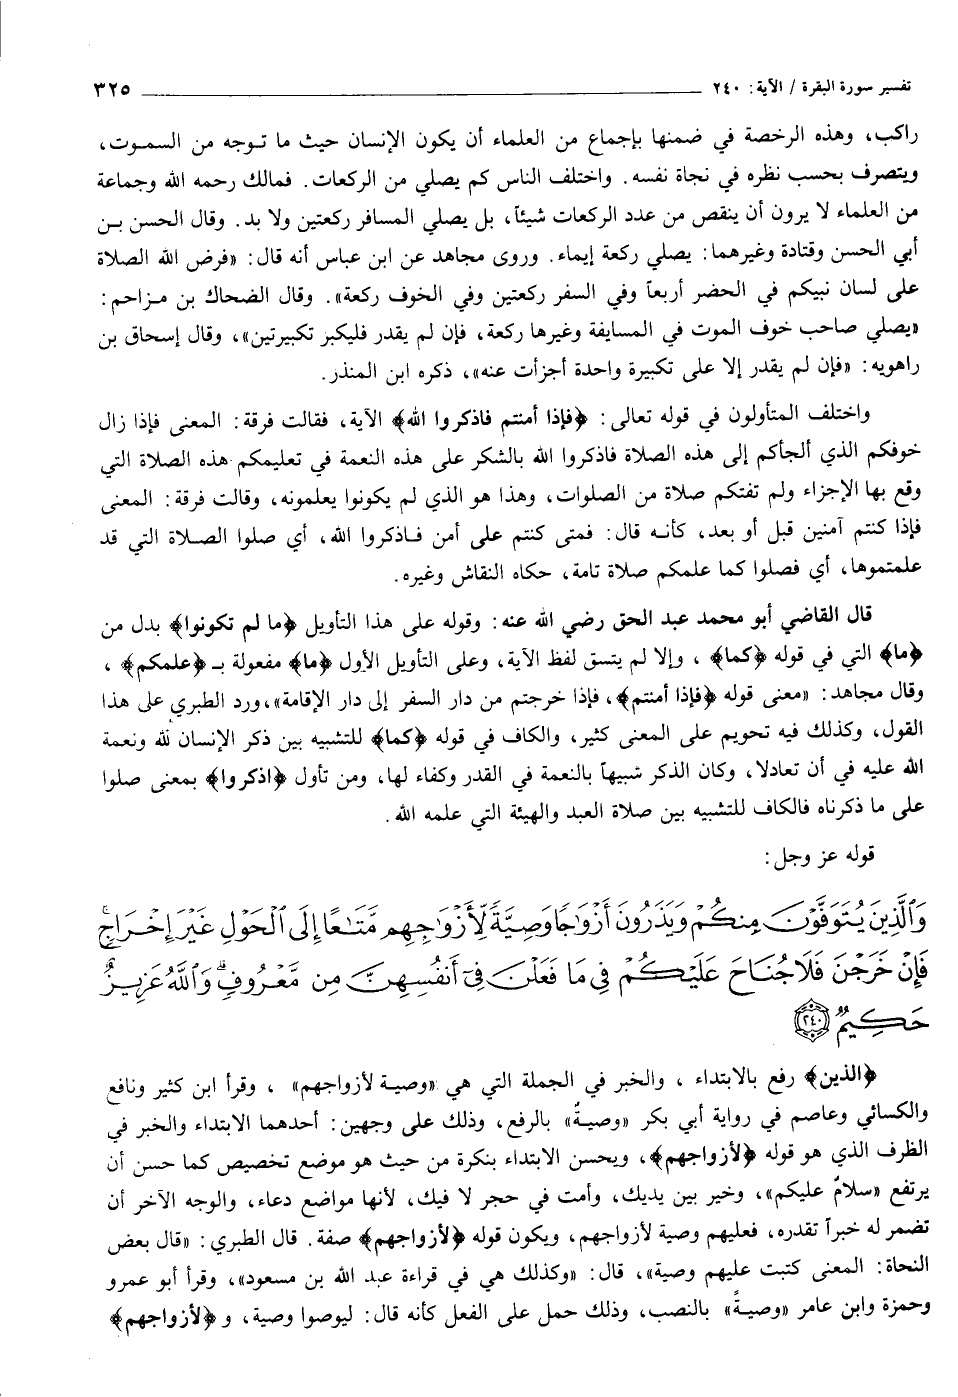 تفسير سورة البقرة / الآية: ٢٤٠ ــــــــــ ٣٢٥
راكب، وهذه الرخصة في ضمنها بإجماع من العلماء أن يكون الإنسان حيث ما توجه من السموت،
ويتصرف بحسب نظره في نجاة نفسه. واختلف الناس كم يصلي من الركعات. فمالك رحمه الله وجماعة
من العلماء لا يرون أن ينقص من عدد الركعات شيئاً، بل يصلي المسافر ركعتين ولا بد. وقال الحسن بن
أبي الحسن وقتادة وغيرهما: يصلي ركعة إيماء. وروى مجاهد عن ابن عباس أنه قال: «فرض الله الصلاة
على لسان نبيكم في الحضر أربعاً وفي السفر ركعتين وفي الخوف ركعة». وقال الضحاك بن مزاحم:
«يصلي صاحب خوف الموت في المسايفة وغيرها ركعة، فإن لم يقدر فليكبر تكبيرتين»، وقال إسحاق بن
راهويه: «فإن لم يقدر إلا على تكبيرة واحدة أجزأت عنه»، ذكره ابن المنذر.
واختلف المتأولون في قوله تعالى: ﴿فإذا أمنتم فاذكروا الله﴾ الآية، فقالت فرقة: المعنى فإذا زال
خوفكم الذي ألجأكم إلى هذه الصلاة فاذكروا الله بالشكر على هذه النعمة في تعليمكم هذه الصلاة التي
وقع بها الإجزاء ولم تفتكم صلاة من الصلوات، وهذا هو الذي لم يكونوا يعلمونه، وقالت فرقة: المعنى
فإذا كنتم آمنين قبل أو بعد، كأنه قال: فمتى كنتم على أمن فاذكروا الله، أي صلوا الصلاة التي قد
علمتموها، أي فصلوا كما علمكم صلاة تامة، حكاه النقاش وغيره.
قال القاضي أبو محمد عبد الحق رضي الله عنه: وقوله على هذا التأويل ﴿ما لم تكونوا﴾ بدل من
﴿ما﴾ التي في قوله ﴿كما﴾ ، وإلا لم يتسق لفظ الآية، وعلى التأويل الأول ﴿ما﴾ مفعولة بـ ﴿علمكم﴾ ،
وقال مجاهد: «معنى قوله ﴿فإذا أمنتم﴾، فإذا خرجتم من دار السفر إلى دار الإقامة»، ورد الطبري على هذا
القول، وكذلك فيه تحويم على المعنى كثير، والكاف في قوله ﴿كما﴾ للتشبيه بين ذكر الإنسان لله ونعمة
الله عليه في أن تعادلا، وكان الذكر شبيهاً بالنعمة في القدر وكفاء لها، ومن تأول ﴿اذكروا﴾ بمعنى صلوا
على ما ذكرناه فالكاف للتشبيه بين صلاة العبد والهيئة التي علمه الله.
قوله عز وجل:
وَالَّذِينَ يُتَوَفَّوْنَ مِنكُمْ وَيَذَرُونَ أَزْوَاجًا وَصِيَّةً لِّأَزْوَاجِهِم مَّتَاعًا إِلَى الْحَوْلِ غَيْرَ إِخْرَاجٍ ۚ
فَإِنْ خَرَجْنَ فَلَا جُنَاحَ عَلَيْكُمْ فِي مَا فَعَلْنَ فِي أَنفُسِهِنَّ مِن مَّعْرُوفٍ ۗ وَاللَّهُ عَزِيزٌ
حَكِيمٌ ٢٤٠
﴿الذين﴾ رفع بالابتداء ، والخبر في الجملة التي هي «وصية لأزواجهم» ، وقرأ ابن كثير ونافع
والكسائي وعاصم في رواية أبي بكر «وصيةٌ» بالرفع، وذلك على وجهين: أحدهما الابتداء والخبر في
الظرف الذي هو قوله ﴿لأزواجهم﴾، ويحسن الابتداء بنكرة من حيث هو موضع تخصيص كما حسن أن
يرتفع «سلامٌ عليكم»، وخير بين يديك، وأمت في حجر لا فيك، لأنها مواضع دعاء، والوجه الآخر أن
تضمر له خبراً تقدره، فعليهم وصية لأزواجهم، ويكون قوله ﴿لأزواجهم﴾ صفة. قال الطبري: «قال بعض
النحاة: المعنى كتبت عليهم وصية»، قال: «وكذلك هي في قراءة عبد الله بن مسعود»، وقرأ أبو عمرو
وحمزة وابن عامر «وصيةً» بالنصب، وذلك حمل على الفعل كأنه قال: ليوصوا وصية، و ﴿لأزواجهم﴾